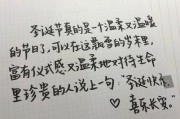 圣诞节真的是一个温柔又温暖
的节日了,可以在这飘雪的岁末里,
富有仪式感又温柔地对待生命
里珍贵的人说上一句:“圣诞快乐,
喜乐长安。”